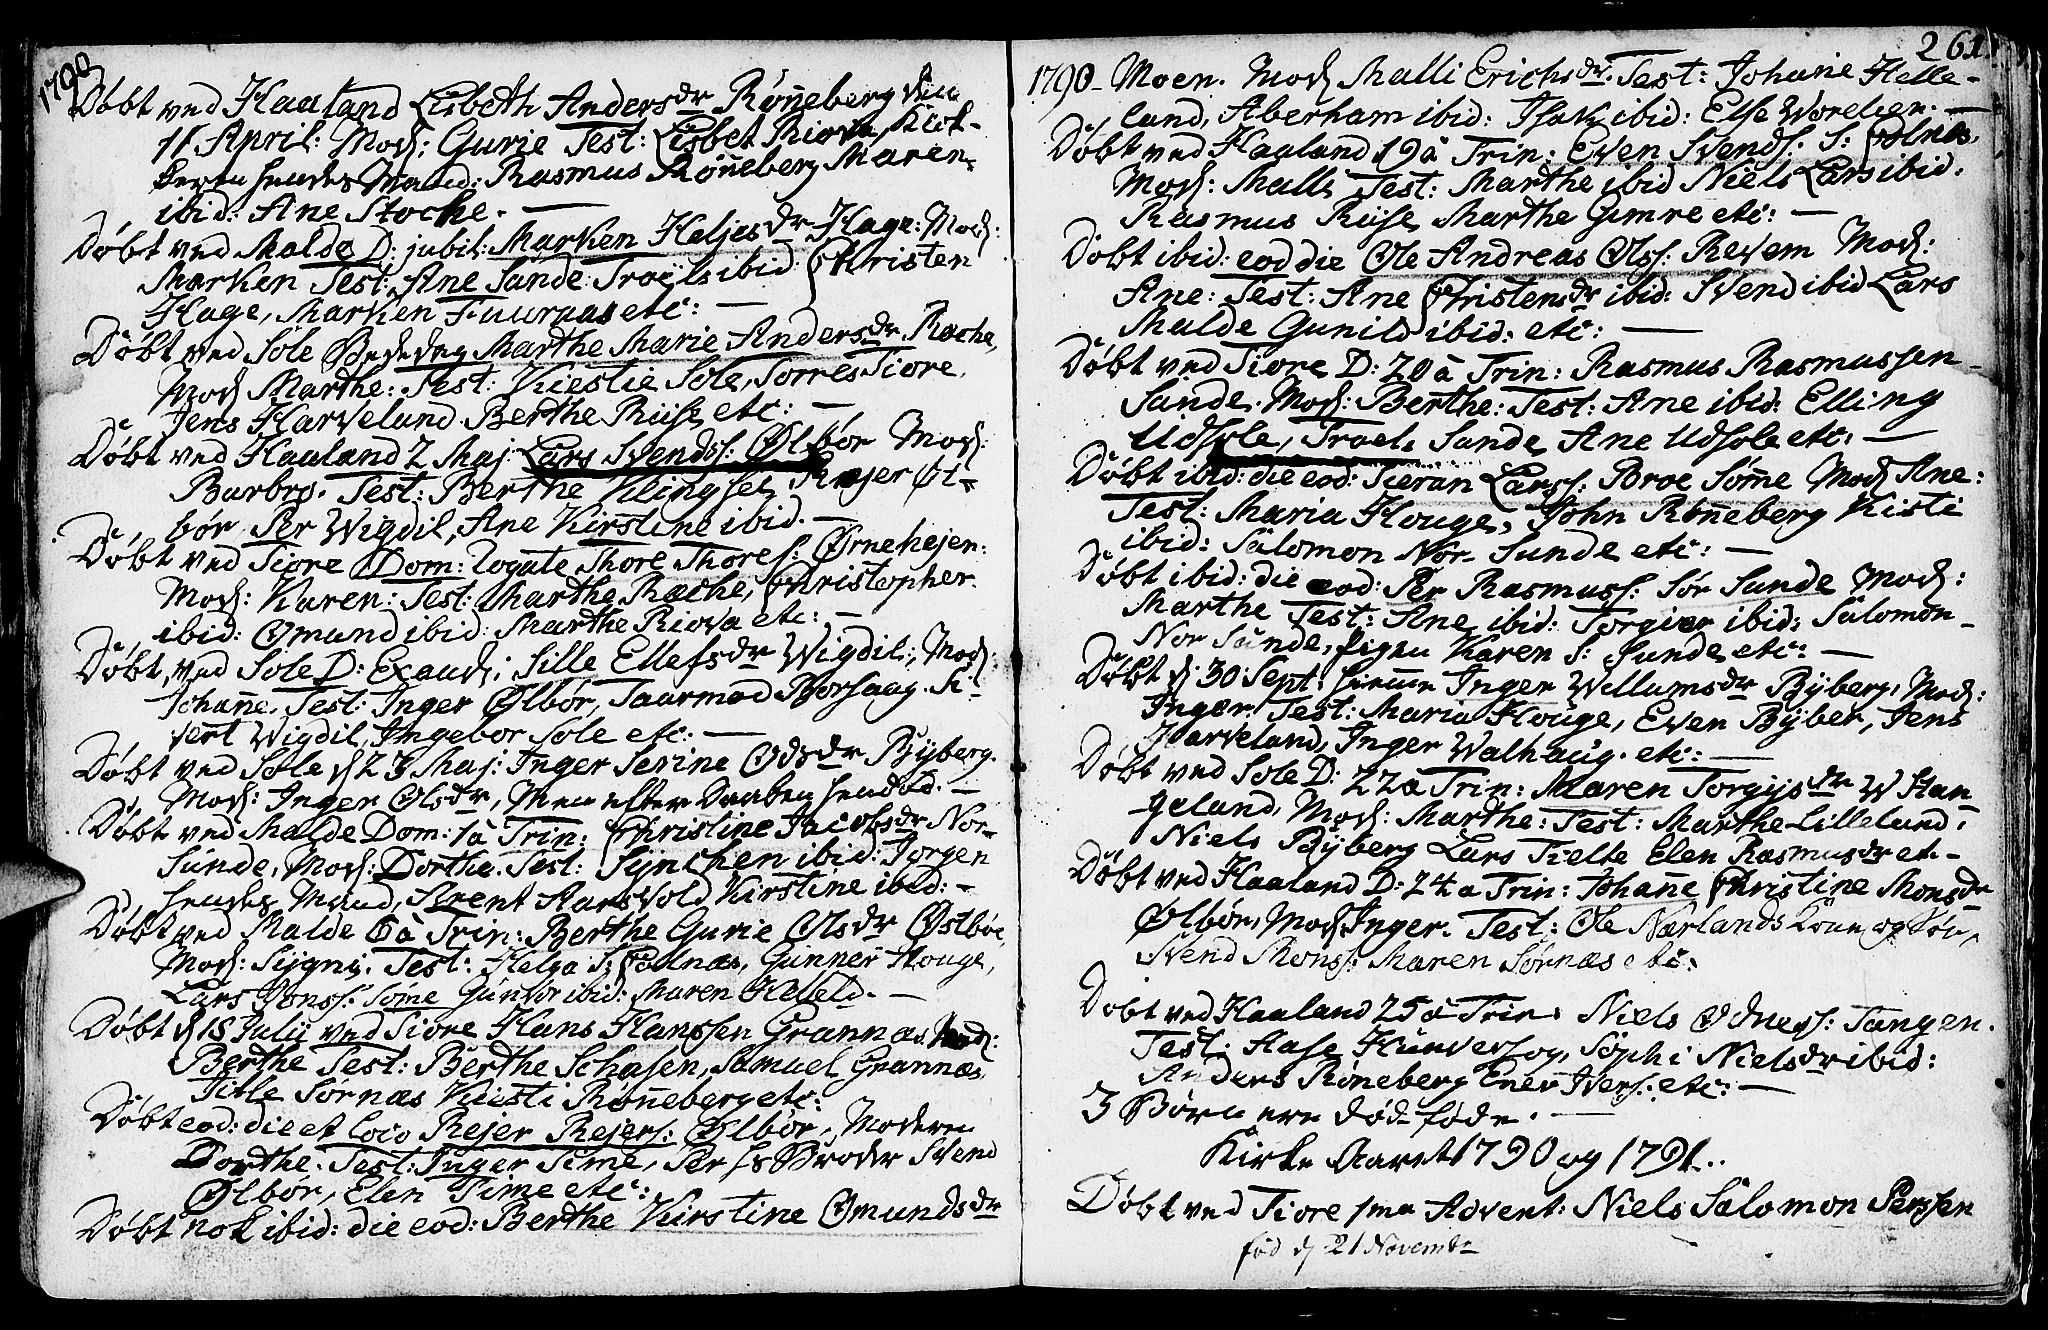 1790
Døbt ved Haaland Lisbeth Andersdr Rönneberg den
11 April: Mod: Gurie Test: Lisbet Riova, Kick-
hendes Mand: Rasmus Rönneberg Maren
ibid: Ane Stocke. —
Døbt ved Malde D: jubil: Marken Heljesdr Hage: Mod:
Marken Test: Ane Sunde Troëls ibid: Christen
Hage, Marken Fuuraas etc: —
Døbt ved Sole Bededag Marthe Marie Andersdr Ræche,
Mod Marthe: Test: Kiestie Sole, Torres Tiore,
Jens Harvelund Berthe Riise etc: —
Døbt ved Haaland 2 Maj: Lars Svends: Ølbör Mod:
Barbro. Test: Berthe Klingsei, Rejer Øl-
bör Per Wigdil, Ane Kirstine ibid. —
Døbt ved Tiore Dom: Rogate Thore Thores: Ørnehejen:
Mod: Karen: Test: Marthe Ræche, Christopher
ibid: Omund ibid: Marthe Riova etc: —
Døbt ved Sole D: Exaudi: Sille Ellefsdr Wigdil:, Mod:
Johane, Test: Inger Ølbör, Taarmod Borsaag. Si-
vert Wigdil, Ingebor Sole etc: —
Døbt ved Sole d 23 Maj: Inger Serine Odsdr Byberg.
Mod: Inger Olsdr, Men efter Daaben hendöd. —
Døbt ved Malde Dom: 1 à Trin: Christine Jacobsdr Nor-
Sunde, Mod: Dorthe. Test: Synchen ibid: Jørgen
hendes Mand, Arent Aarsvold Kirstine ibid: —
Døbt ved Malde 6 à Trin: Berthe Gurie Olsdr Østböe
Mod: Sygni. Test: Helga S: Colnæs, Gunner Houge,
Lars Jonss: Søme Gunvor ibid: Maren
Døbt d 18 July ved Tiore Hans Hanssen Grannæs Mod:
Berthe Test: Berthe Schasen, Samuel Grannæs
Title Sørnæs Kiesti Rönneberg etc:
Døbt eod: die et loco Rejer Rejers: Ølbör, Moderen
Dorthe. Test: Inger Sime, Per hs Broder Svend
Ølbör, Elen Time etc:
Døbt nok ibid: die eod: Berthe Kirstine Omundsdr
261
1790- Moen. Mod Malli Erichsdr. Test: Johane Helle-
land, Aberham ibid: Isak ibid: Else Worelien. —
Døbt ved Haaland 19 à Trin: Even Svends: S: Colnæs,
Mod: Malli Test: Marthe ibid Niels Lars ibid:
Rasmus Riise Marthe Gimre etc: —
Døbt ibid: eod die Ole Andreas Olss: Revem Mod:
Ane: Test: Ane Christensdr ibid: Svend ibid Lars
Malde Gunild ibid: etc: —
Døbt ved Tiore D: 20 à Trin: Rasmus Rasmussen
Sunde. Mod: Berthe: Test: Ane ibid: Elling
Udsole, Troels Sunde Ane Udsole etc: —
Døbt ibid: die eod: Tieran Larss: Broe Sömme Mod Ane:
Test: Maria Houge, John Rönneberg Kisti
ibid: Salomon Nor Sunde etc: —
Døbt ibid: die eod: Per Rasmuss: Sør Sunde Mod:
Marthe Test: Ane ibid: Torgier ibid: Salomon
Nor Sunde, Pigen Karen S: Sunde etc: —
Døbt d: 30 Sept: hieme Inger Willumsdr Byberg, Mod:
Inger Test: Maria Houge, Even Byber, Jens
Harveland, Inger Walhaug. etc: —
Døbt ved Sole D: 22 à Trin: Maren Torgisdr W Stan
geland, Mod: Marthe: Test: Marthe Lillelund,
Niels Byberg Lars Tielte Elen Rasmusdr etc-
Døbt ved Haaland D: 24 a Trin: Johanne Christine Monsdr
Ølbör, Mod Inger. Test: Ole Nærlands Kone og Sön,
Svend Monss: Maren Sørnæs etc:
Døbt ved Haaland 25 à Trin: Niels Odners: Tangen.
Test: Aase Hunvers og Sophi Nielsdr ibid:
Anders Røneberg Ener Ivers: etc: —
3 Børn ere død føde. —
Kirke Aaret 1790 og 1791..
Døbt ved Tiore 1ma Advent: Niels Salomon Perssen
fød d 21 Novembr